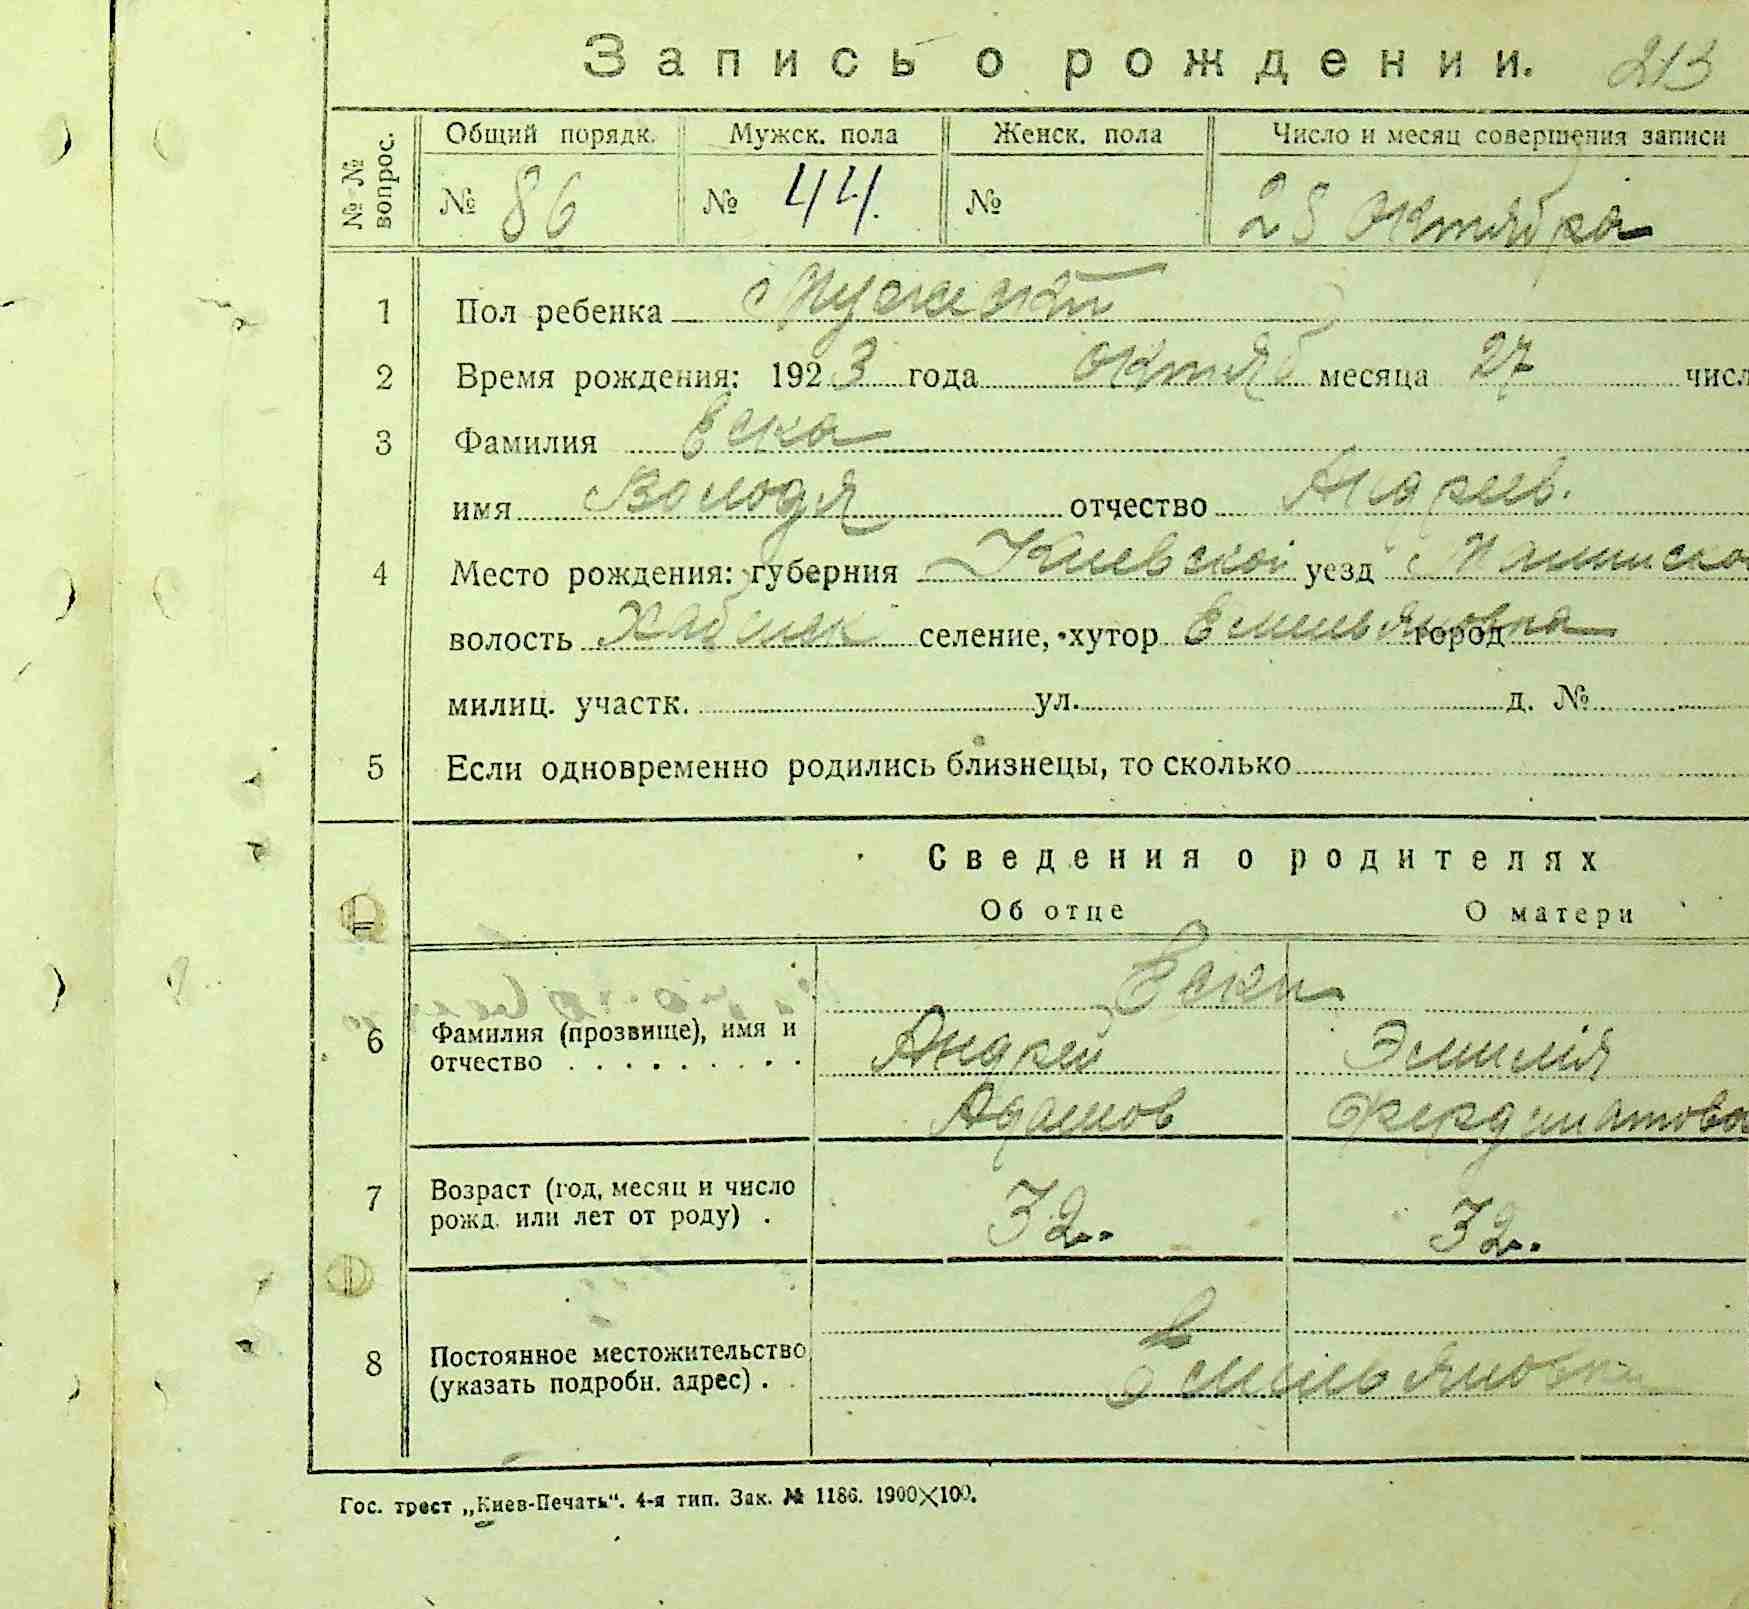 Запись о рождении. 213
№№ вопрос.
Общий порядк. Мужск. пола Женск. пола Число и месяц совершения записи
№ 86 № 44. № 28 октября
1 Пол ребенка Мужской
2 Время рождения: 1923 года октяб месяца 27 числ
3 Фамилия Еске
имя Володя отчество Андреев.
4 Место рождения: губерния Киевской уезд
волость селение, хутор Емельяновка город
милиц. участк. ул. д. №
5 Если одновременно родились близнецы, то сколько
Сведения о родителях
Об отце О матери
Еске
6 Фамилия (прозвище), имя и отчество Андрей Эмилія
Адамов
7 Возраст (год, месяц и число рожд. или лет от роду) . 32. 32.
8 Постоянное местожительство (указать подробн. адрес) . Емельяновка
Гос. трест „Киев-Печать“. 4-я тип. Зак. № 1186. 1900×100.